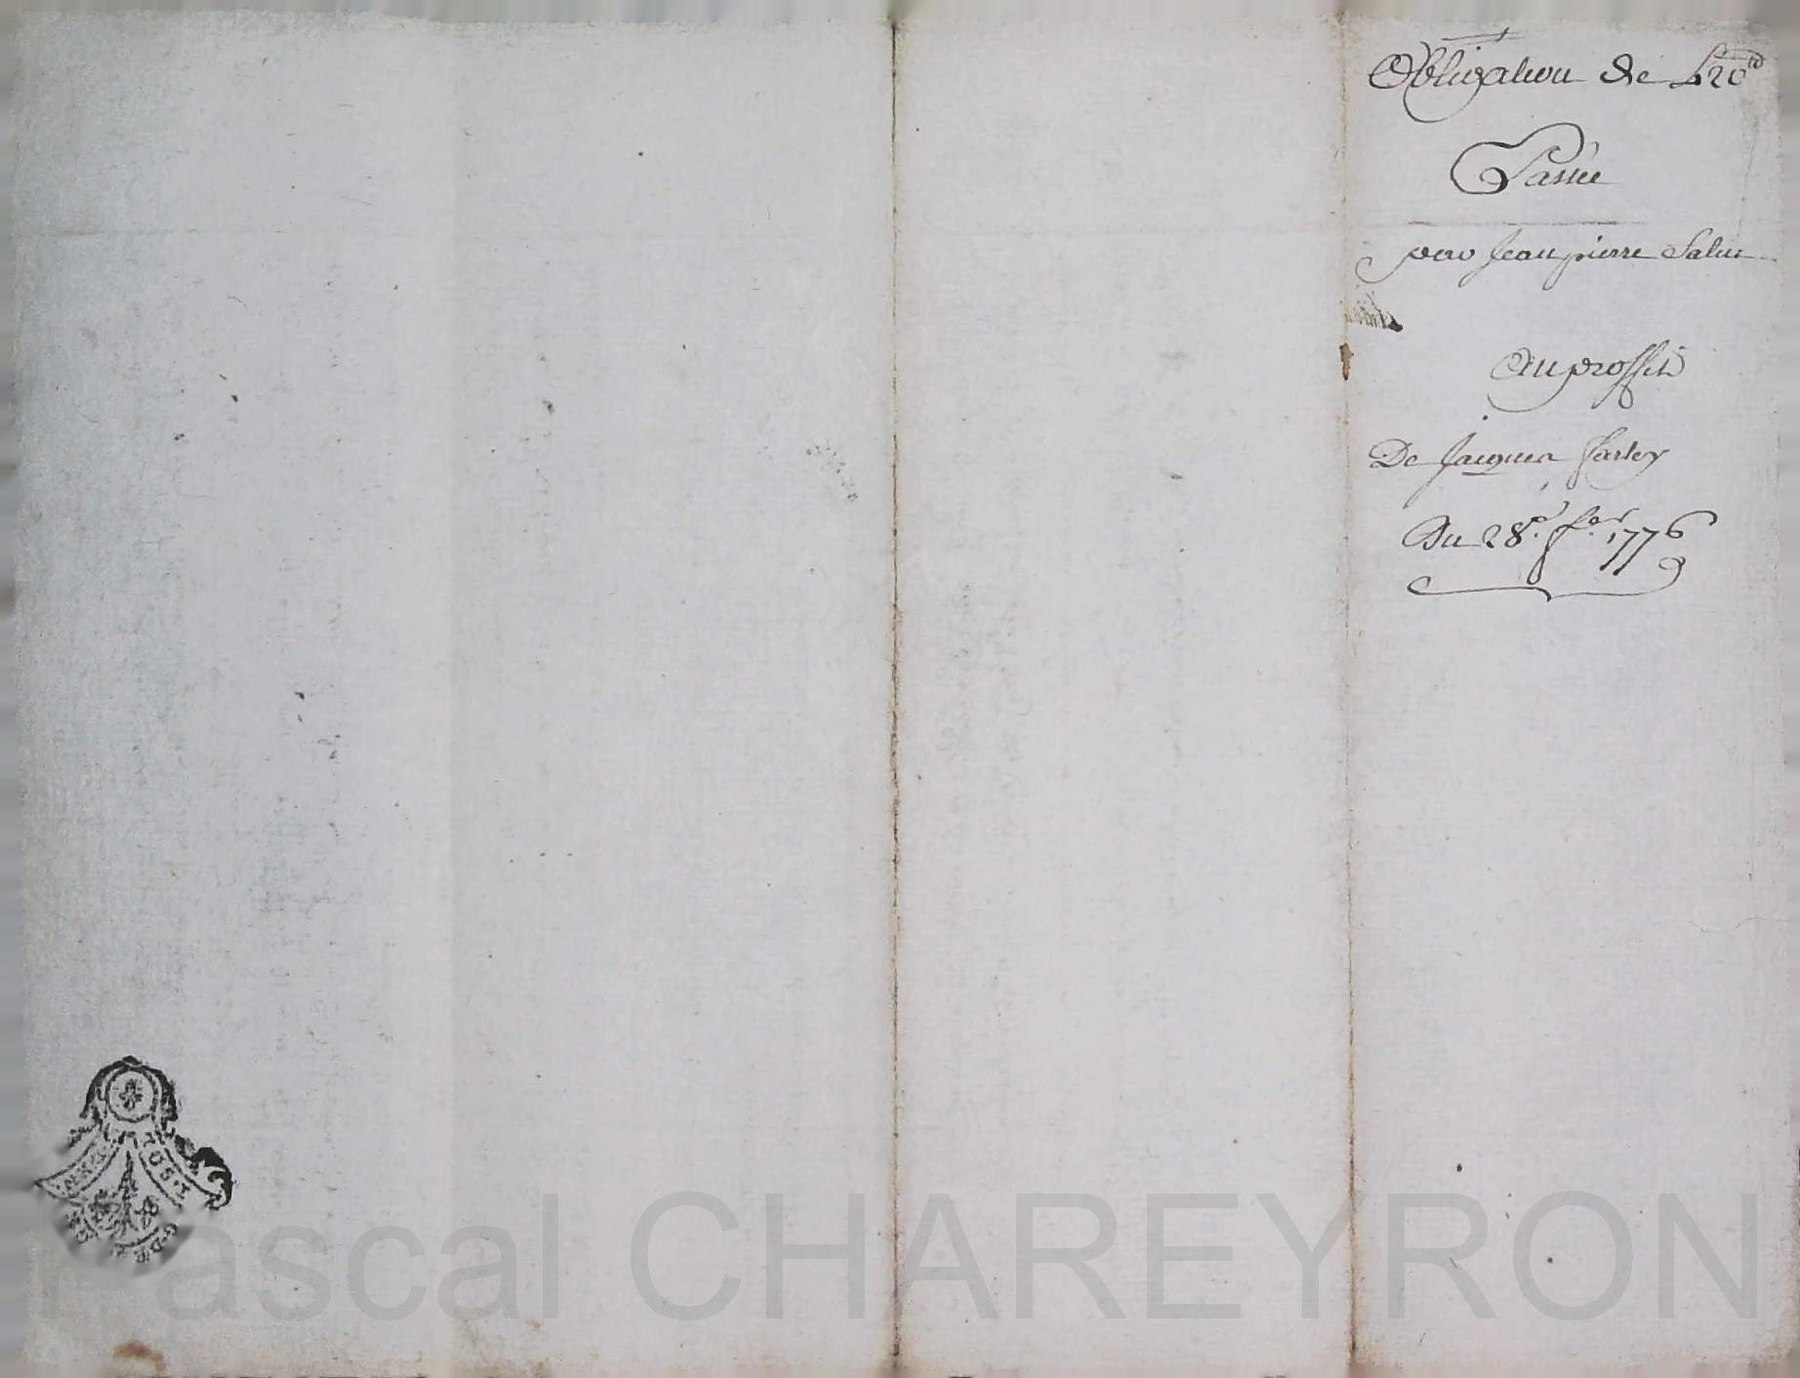 Obligation de L 20
Passée
par Jean pierre Salue
Au proffit
De Jacques farley
Du 28e. f.er 1776
Pascal CHAREYRON